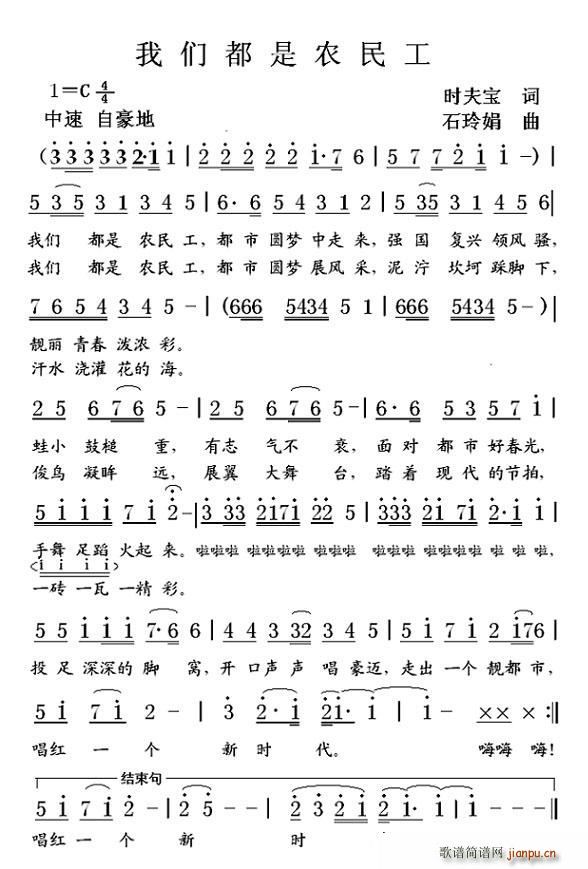 我们都是农民工
1=C 4/4
时夫宝 词
中速 自豪地
石玲娟 曲
(3333 332·1 1 | 2 2 2 2 2 1·7 6 | 5 7 7 2 1 1 -) |
5 3 5 3 1 3 4 5 | 6· 6 5 7 5 3 4 3 1 2 | 5 35 3 1 2 4 5 6 |
我们 都是 农民工,都市圆梦中走来,强国 复兴领风骚,
我们 都是 农民工,都市圆梦展风采,泥泞 坎坷踩脚下,
7 6 5 4 3 4 5 - | (666 5434 5 1 | 666 5434 5 -) |
靓丽 青春 泼浓 彩。
汗水 浇灌 花的 海。
2 5 6 7 6 5 - | 2 2 6 7 6 5 - | 6· 6 5 3 5 7 1 |
蛙小 鼓槌 重, 有志 气不 衰, 面对 都市好春光,
俊鸟 凝眸 远, 展翼 大舞 台, 踏着 现代的节拍,
5 1 1 1 7 1 2 - | 3 33 2171 22 5 | 333 2171 2·1 1 |
手舞 足蹈 火起 来。啦啦啦 啦啦啦啦 啦啦 啦, 啦啦啦 啦啦啦啦 啦 啦 啦,
(1 1 1 1)
一砖 一瓦 一精 彩。
5 5 1 1 1 7·6 6 | 4 4 3 32 5 5 | 5 1 7 1 2 176 |
投足 深深的 脚 窝,开口声声 唱豪迈,走出一个靓都市,
5 1 7 1 2 - | 3 2·1 21· 1 | 1 - ×× × :‖
唱红 一 个 新时 代。 嗨嗨 嗨!
结束句
5 1 7 1 2 | 2 5 - - | 3 3 2 1 2 1· 1 | 1 - - ‖
唱红 一 个 新 时
歌谱简谱网
jianpu.cn